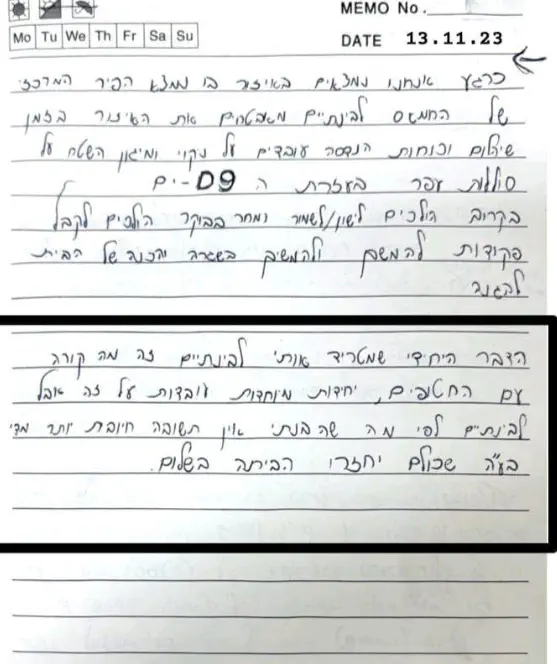 MEMO No.
Mo Tu We Th Fr Sa Su
DATE 13.11.23
כרגע אנחנו נמצאים באיזור בו נמצא הפיר המרכזי
של החמאס לבינתיים מאבטחים את האיזור בזמן
שיהלום וכוחות הנדסה עובדים על ניקוי ומיגון השטח על
סוללות עפר בעזרת ה D9-ים
בקרוב הולכים לישון/לשמור ומחר בבוקר הולכים לקבל
פקודות להמשם ולהמשיך בשגרה והכנה של הבית
להגנה
הדבר היחידי שמטריד אותי לבינתיים זה מה קורה
עם החטופים, יחידות מיוחדות עובדות על זה אבל
לבינתיים לפי מה שהבנתי אין תשובה חיובית יותר מדי
בע"ה שכולם יחזרו הביתה בשלום.